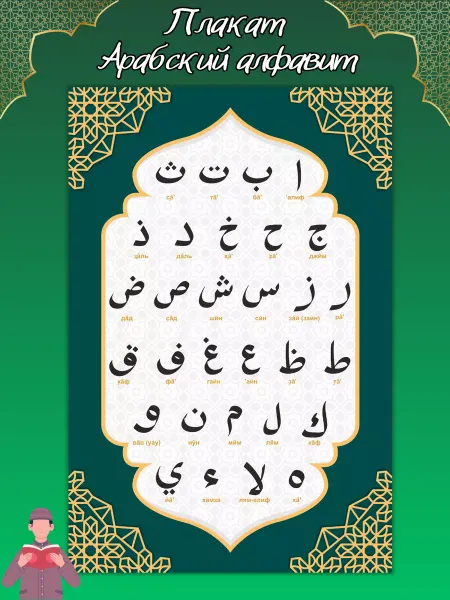 Плакат
Арабский алфавит
ا ب ت ث
'алиф ба̄' та̄' са̄'
ج ح خ د ذ
джӣм ха̄' ха̄' да̄ль за̄ль
ر ز س ش ص ض
ра̄' за̄й (зайн) сӣн шӣн са̄д да̄д
ط ظ ع غ ف ق
та̄' за̄' 'айн гайн фа̄' к̣а̄ф
ك ل م ن و
ка̄ф ля̄м мӣм нӯн ва̄в (уау)
ه لا ء ي
ха̄' лям-алиф хамза йа̄'